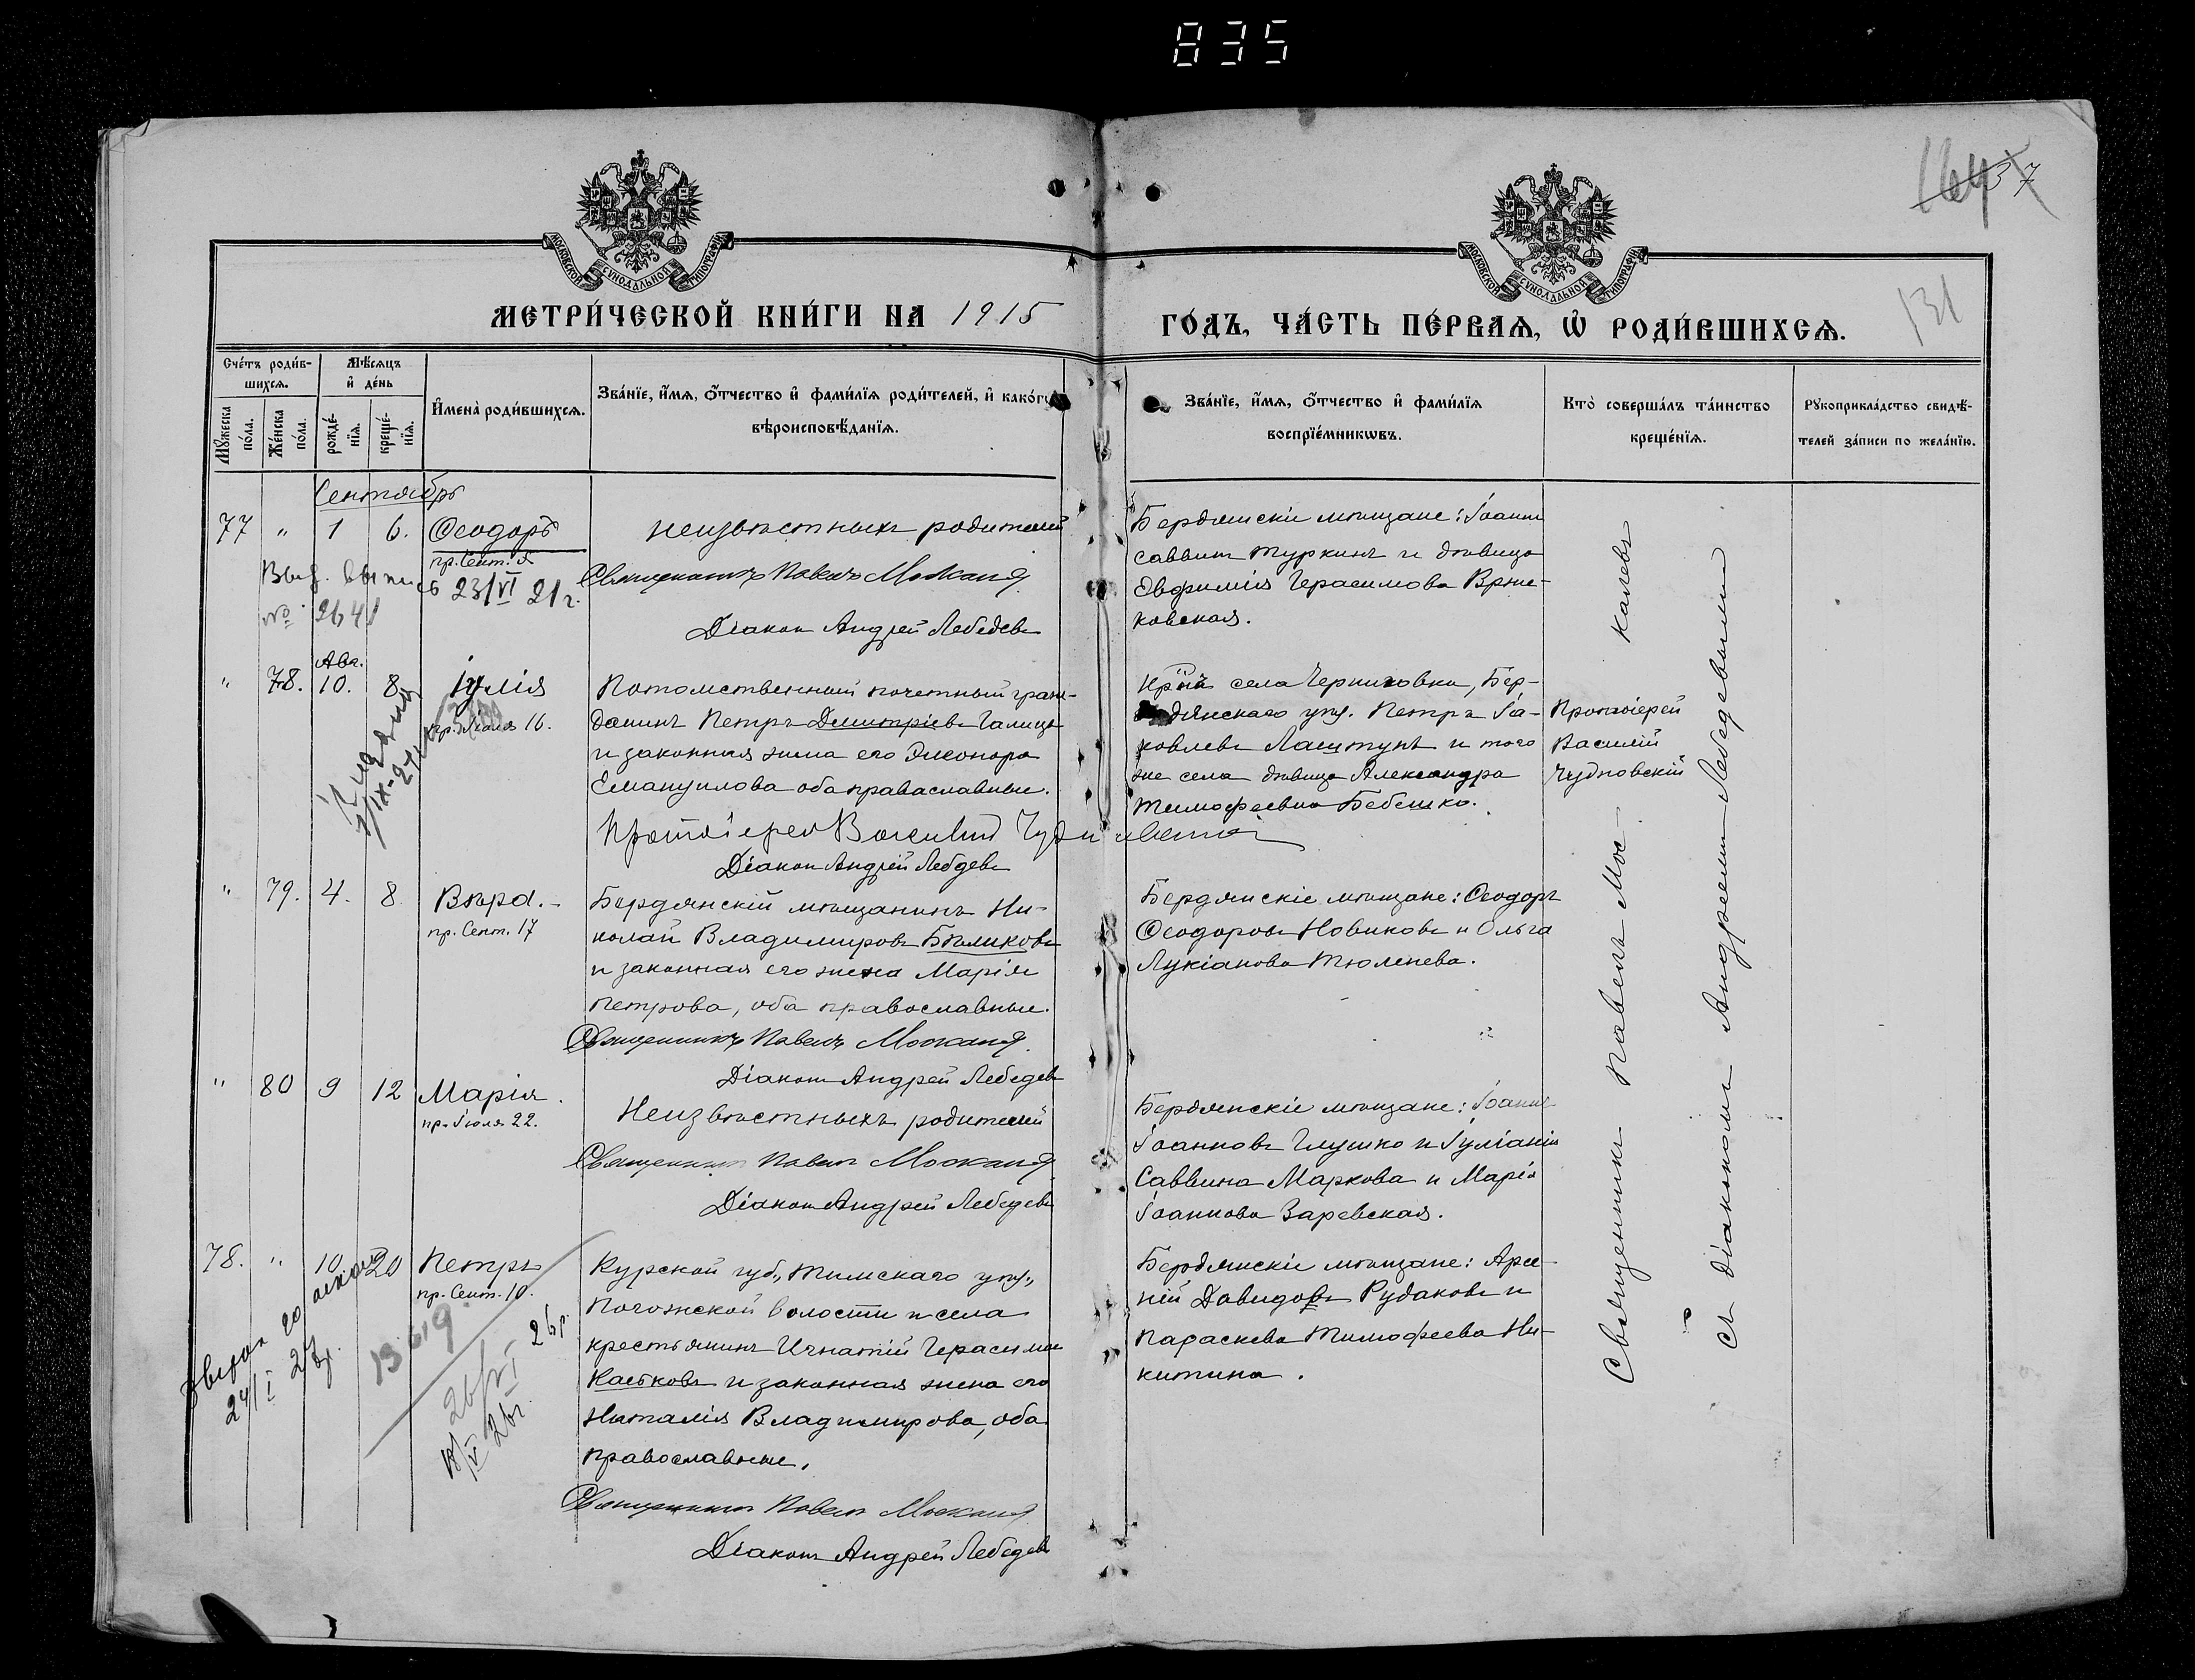 835
164
37
131
МОСКОВСКОЙ СѴНОДАЛЬНОЙ ТИПОГРАФІИ
МОСКОВСКОЙ СѴНОДАЛЬНОЙ ТИПОГРАФІИ
МЕТРИ́ЧЕСКОЙ КНИ́ГИ НА 1915
ГО́ДЪ, ЧА́СТЬ ПЕ́РВАѦ, Ѽ РОДИ́ВШИХСѦ.
Сче́тъ роди́в-
шихсѧ.
Мꙋ́жеска
по́ла.
Же́нска
по́ла.
Мѣ́сѧцъ
и҆ де́нь
рожде́-
нїѧ.
креще́-
нїѧ.
И҆мена̀ роди́вшихсѧ.
Зва́нїе, и҆́мѧ, ѻ҆́тчество и҆ фами́лїѧ роди́телей, и҆ како́гѡ
вѣроисповѣ́данїѧ.
Зва́нїе, и҆́мѧ, ѻ҆́тчество и҆ фами́лїѧ
воспрїе́мникѡвъ.
Кто̀ соверша́лъ та́инство
креще́нїѧ.
Рꙋкоприкла́дство свидѣ́-
телей за́писи по жела́нїю.
Сентябрь
77 " 1 6. Ѳеодоръ
пр. Сент. 5
Выд. выпись 23/VI 21 г.
№ 2641
неизвѣстныхъ родителей
Священникъ Павелъ Москалев
Діаконъ Андрей Лебедевъ
Бердянскіе мѣщане: Іоаннъ
Саввинъ Туркинъ и дѣвица
Евфимія Герасимова Врже-
ковская.
Авг.
" 78. 10. 8 Іулія
пр. Іюля 16.
Потомственный почетный граж-
данинъ Петръ Димитріевъ Галица
и законная жена его Элеонора
Емануилова оба православные.
Протоіерей Василій Чудновскій
Діаконъ Андрей Лебедевъ
села Черниговки, Бер-
дянскаго уѣз. Петръ Іа-
ковлевъ Лаштунъ и того
же села дѣвица Александра
Тимофеевна Бебешко.
Протоіерей
Василій
Чудновскій
" 79. 4. 8. Вѣра.
пр. Сент. 17
Бердянскій мѣщанинъ Ни-
колай Владимировъ Бѣликовъ
и законная его жена Марія
Петрова, оба православные.
Священникъ Павелъ Москалев
Діаконъ Андрей Лебедевъ
Бердянскіе мѣщане: Ѳеодоръ
Ѳеодоровъ Новиковъ и Ольга
Лукіанова Тюленева.
" 80 9 12 Марія.
пр. Іюля 22.
Неизвѣстныхъ родителей
Священникъ Павелъ Москалев
Діаконъ Андрей Лебедевъ
Бердянскіе мѣщане: Іоаннъ
Іоанновъ Глушко и Іуліанія
Саввина Маркова и Марія
Іоаннова Заревская.
78. " 10. 20 Петръ
пр. Сент. 10.
24/I
13619
26/VI 26 г.
18/V 26 г.
Курской губ., Тимскаго уѣз.,
Погожской волости и села
крестьянинъ Игнатій Герасимовъ
Каськовъ и законная жена его
Наталія Владимирова, оба
православные.
Священникъ Павелъ Москалев
Діаконъ Андрей Лебедевъ
Бердянскіе мѣщане: Арсе-
ній Давидовъ Рудаковъ и
Параскева Тимофеева Ни-
китина.
Священникъ Павелъ Мос-
калевъ
съ діакономъ Андреемъ Лебедевымъ